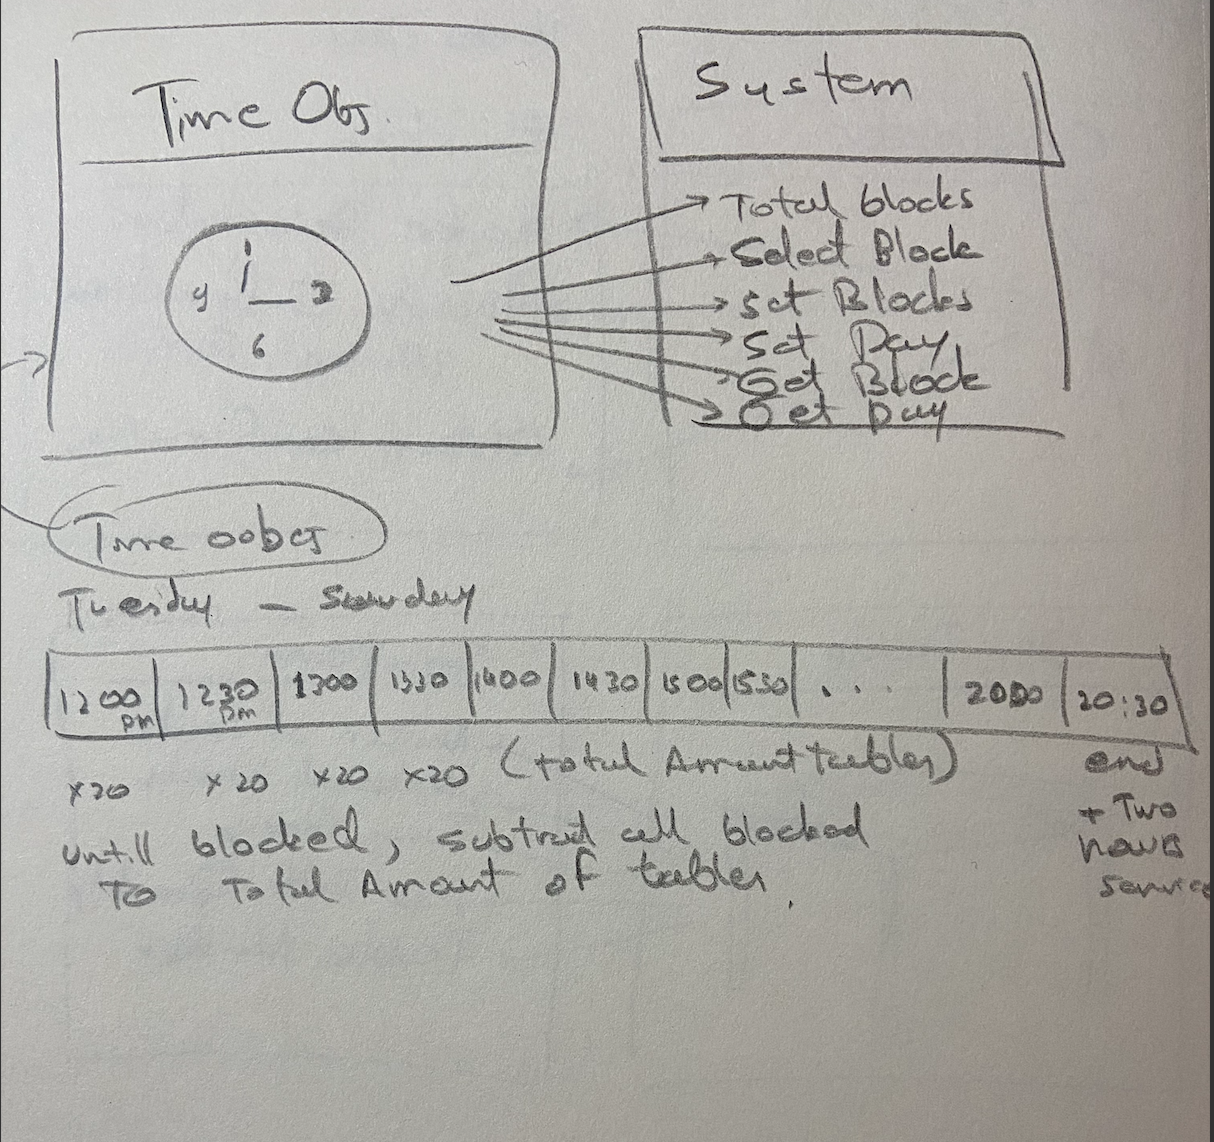 Time Obj.
System
Total blocks
Select Block
Set Blocks
Set Day
Get Block
Get Day
9
6
Time
Tuesday - Sunday
1200 pm 1230 pm 1300 1330 1400 1430 1500 1530 ... 2000 20:30
x20 x20 x20 x20 (total Amount tables)
end
+ Two
hours
service
untill blocked, subtract all blocked
To Total Amount of tables.